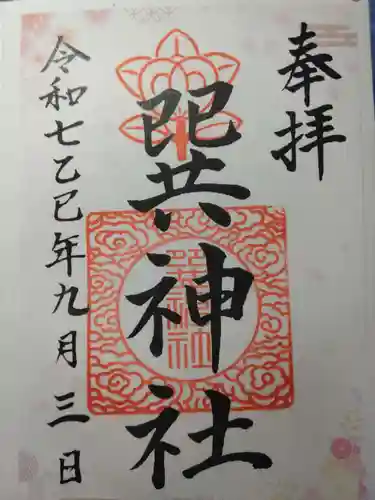 奉拝
巽神社
令和七乙巳年九月三日